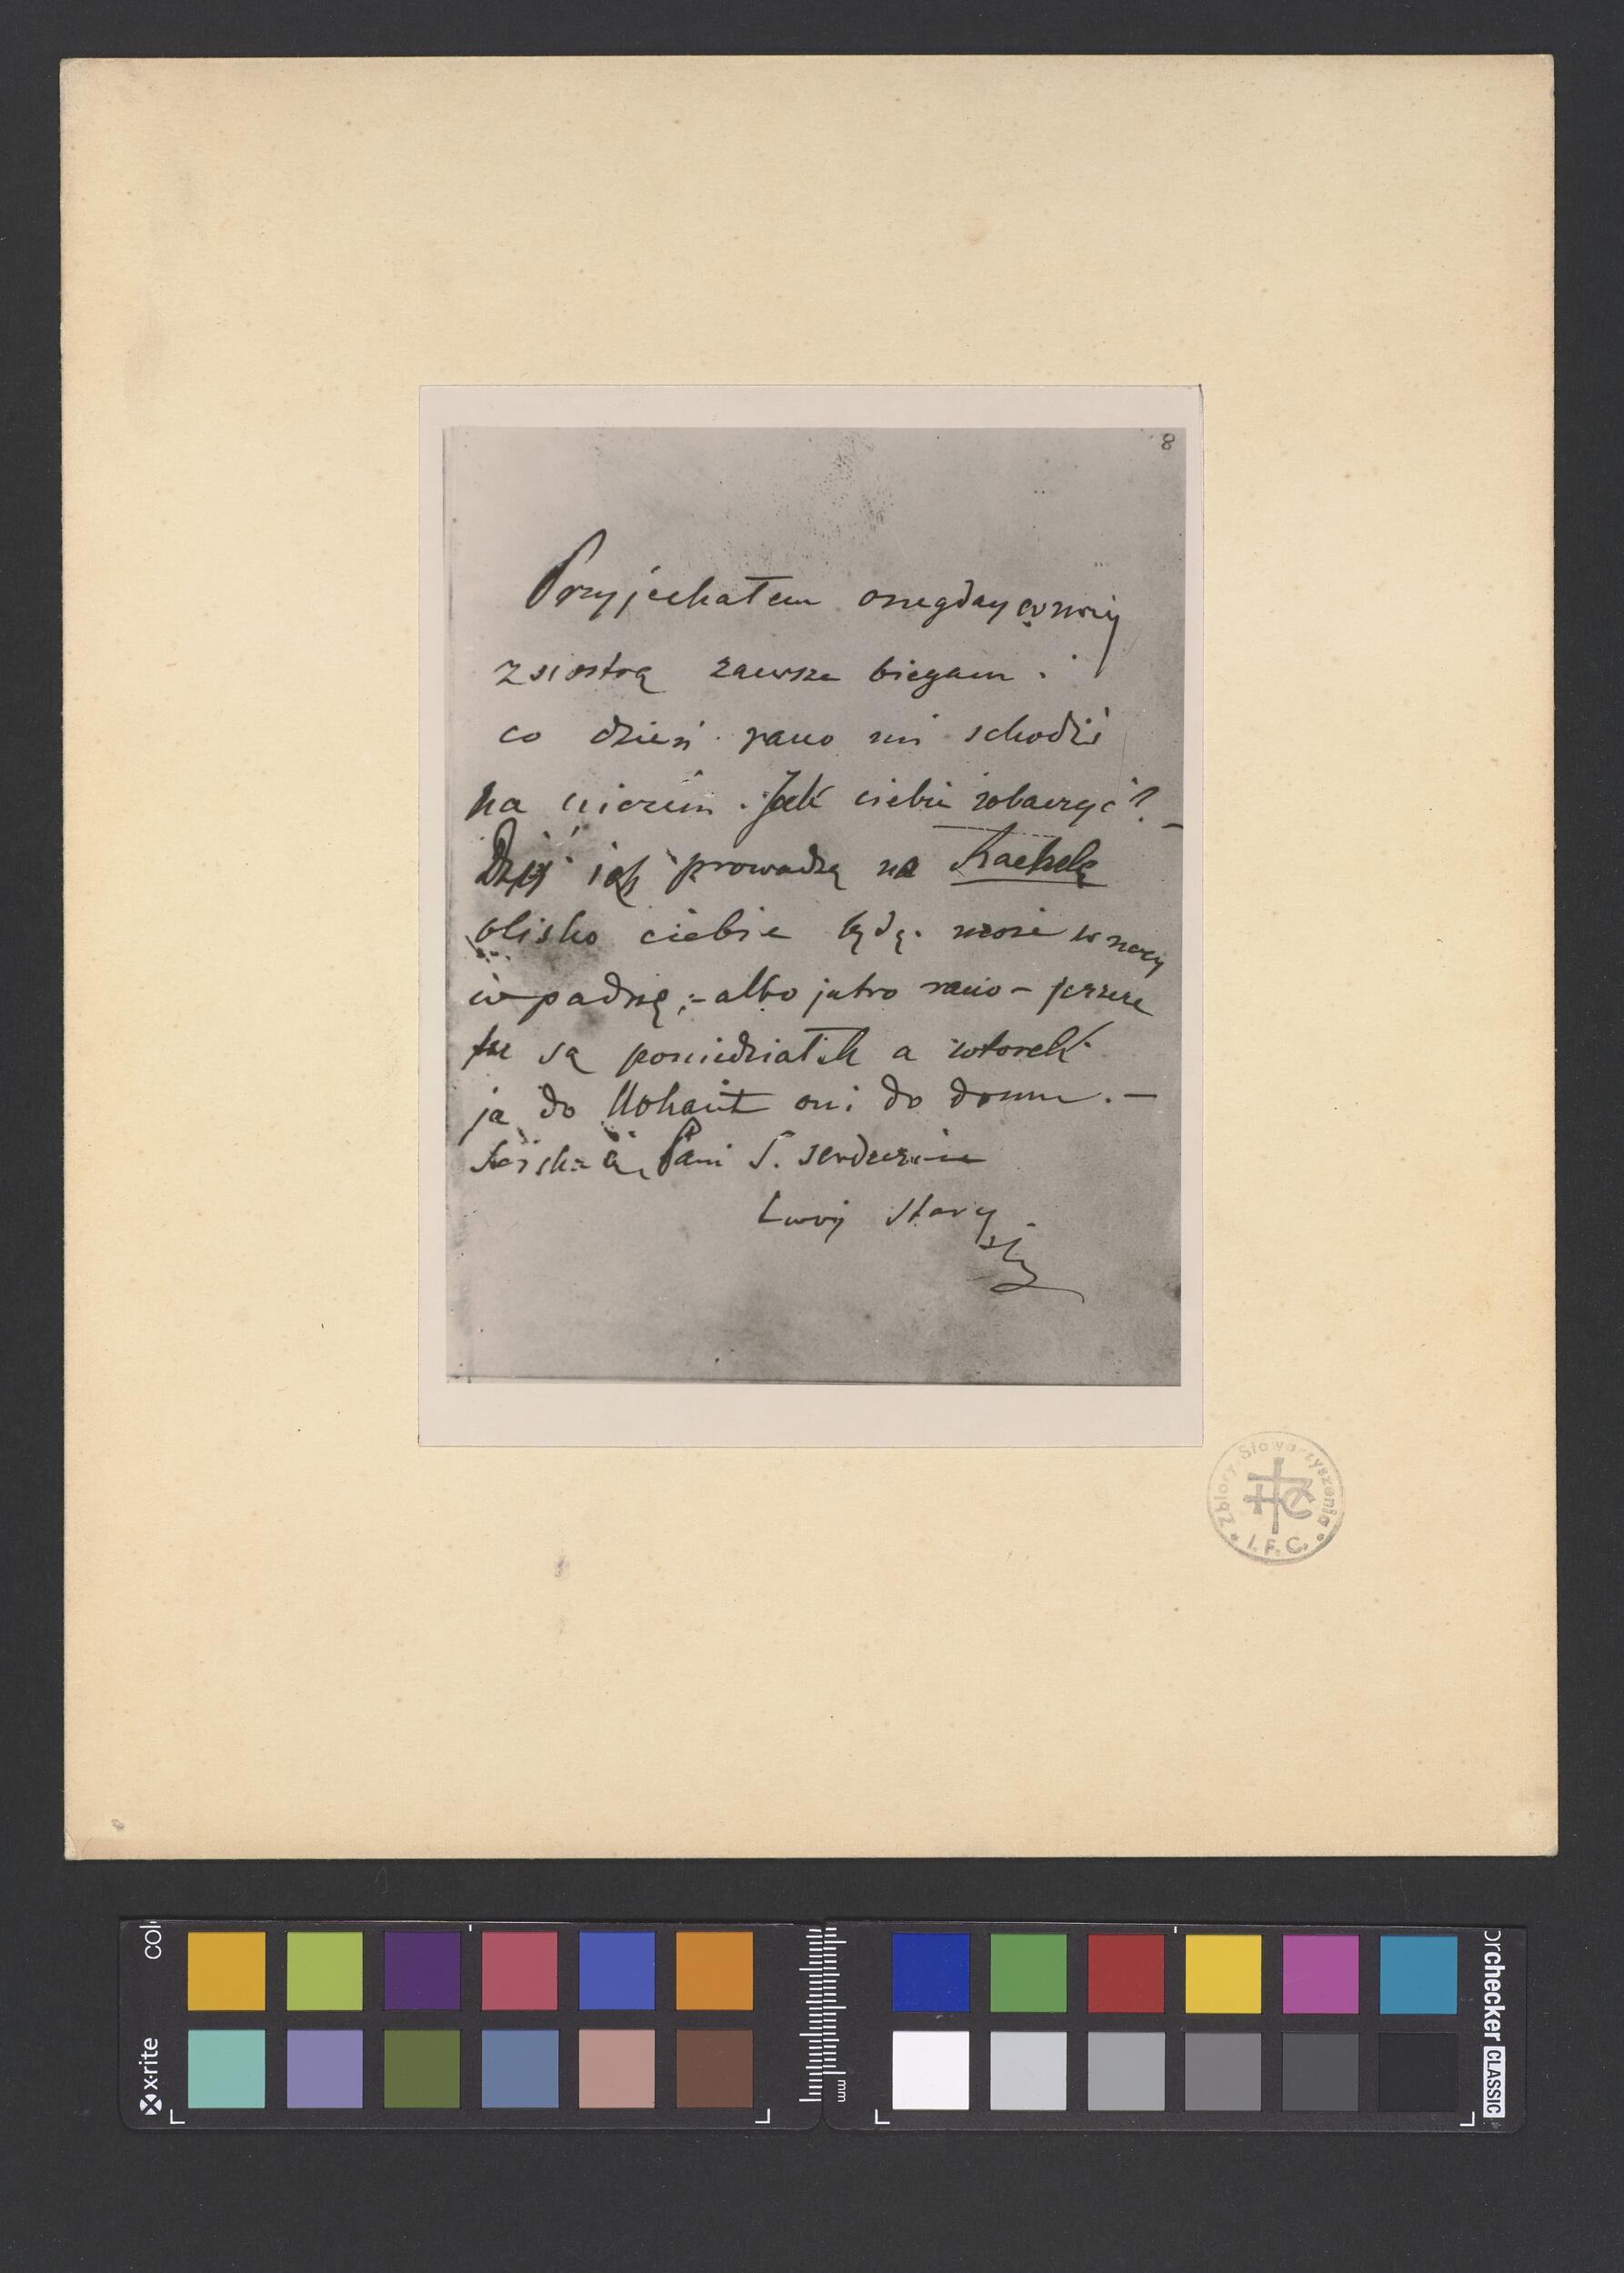 8
Przyjechałem onegday w nocy
z siostrą zawsze biegam.
co dzień rano mi schodzi
na niczem. Jak ciebie zobaczyć?
Dziś ich prowadzą na Rachelę
blisko ciebie będę. może w nocy
wpadnę; – albo jutro rano – jeszcze
tu są poniedziałek a wtorek
ja do Nohant oni do domu. –
Ściskam Pani S. serdecznie
Twój stary
Zbiory Stowarzyszenia
I. F. C.
x-rite
mm
colorchecker CLASSIC